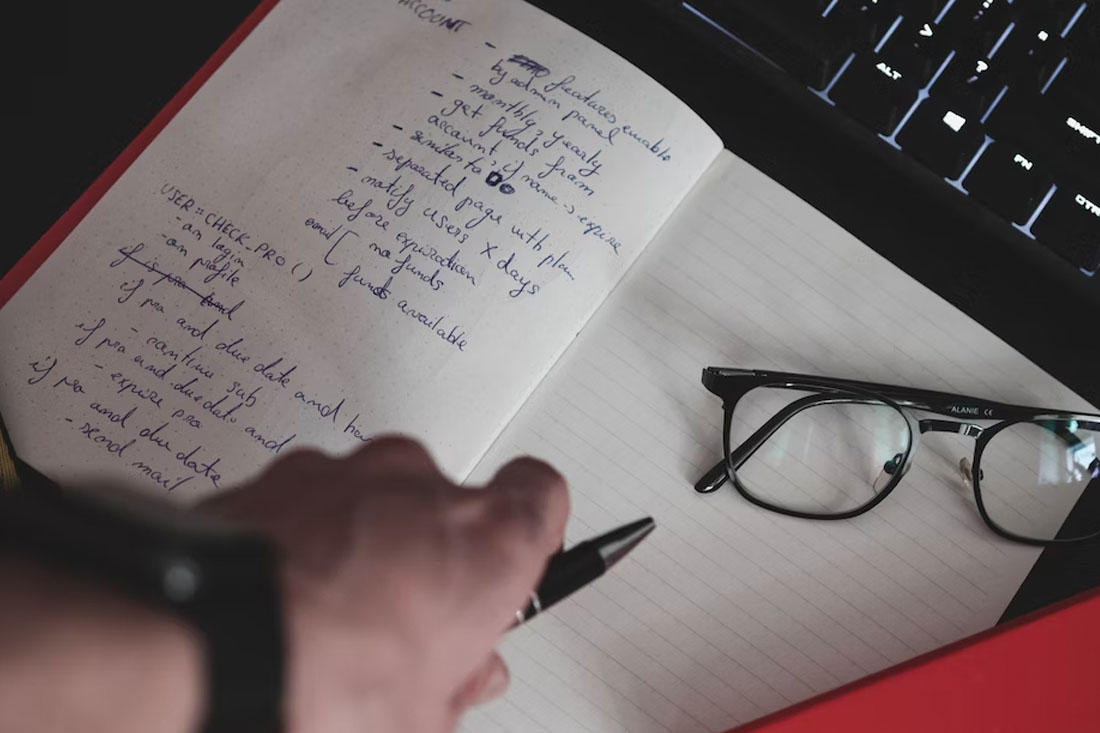 ACCOUNT
- features enable
by admin panel
- monthly, yearly
- get funds from
account, if name.s expire
- similar to DO
- separated page with plan
- notify users X days
before expiration
email [ no funds
funds available
USER::CHECK_PRO()
- on login
- on profile
if pro and due date and
- continue sub
if pro and due date and
- expire pro
if pro and due date
- send mail
ALT
?
FN
SHIFT
CTR
ALANIE CE